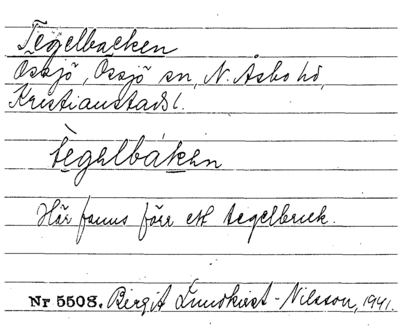 Tegelbacken
Ossjö, Ossjö sn, N. Åsbo hd,
Kristianstads l.
tègelbáken
Här fanns förr ett tegelbruk.
Nr 5508. Birgit Lundkvist-Nilsson, 1941.